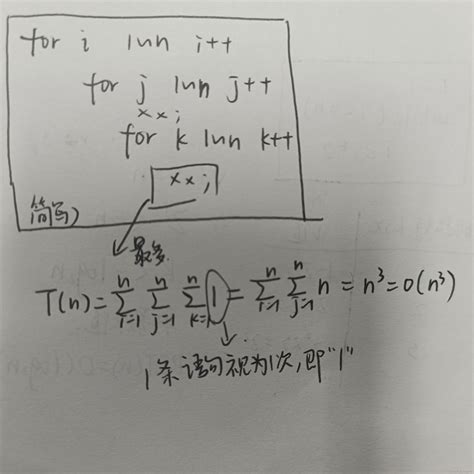 for i 1～n i++
for j 1～n j++
xx;
for k 1～n k++
xx;
简写)
最多
T(n)=∑ⁿᵢ₌₁ ∑ⁿⱼ₌₁ ∑ⁿₖ₌₁ 1 = ∑ⁿᵢ₌₁ ∑ⁿⱼ₌₁ n = n³ = O(n³)
1条语句视为1次,即"1"